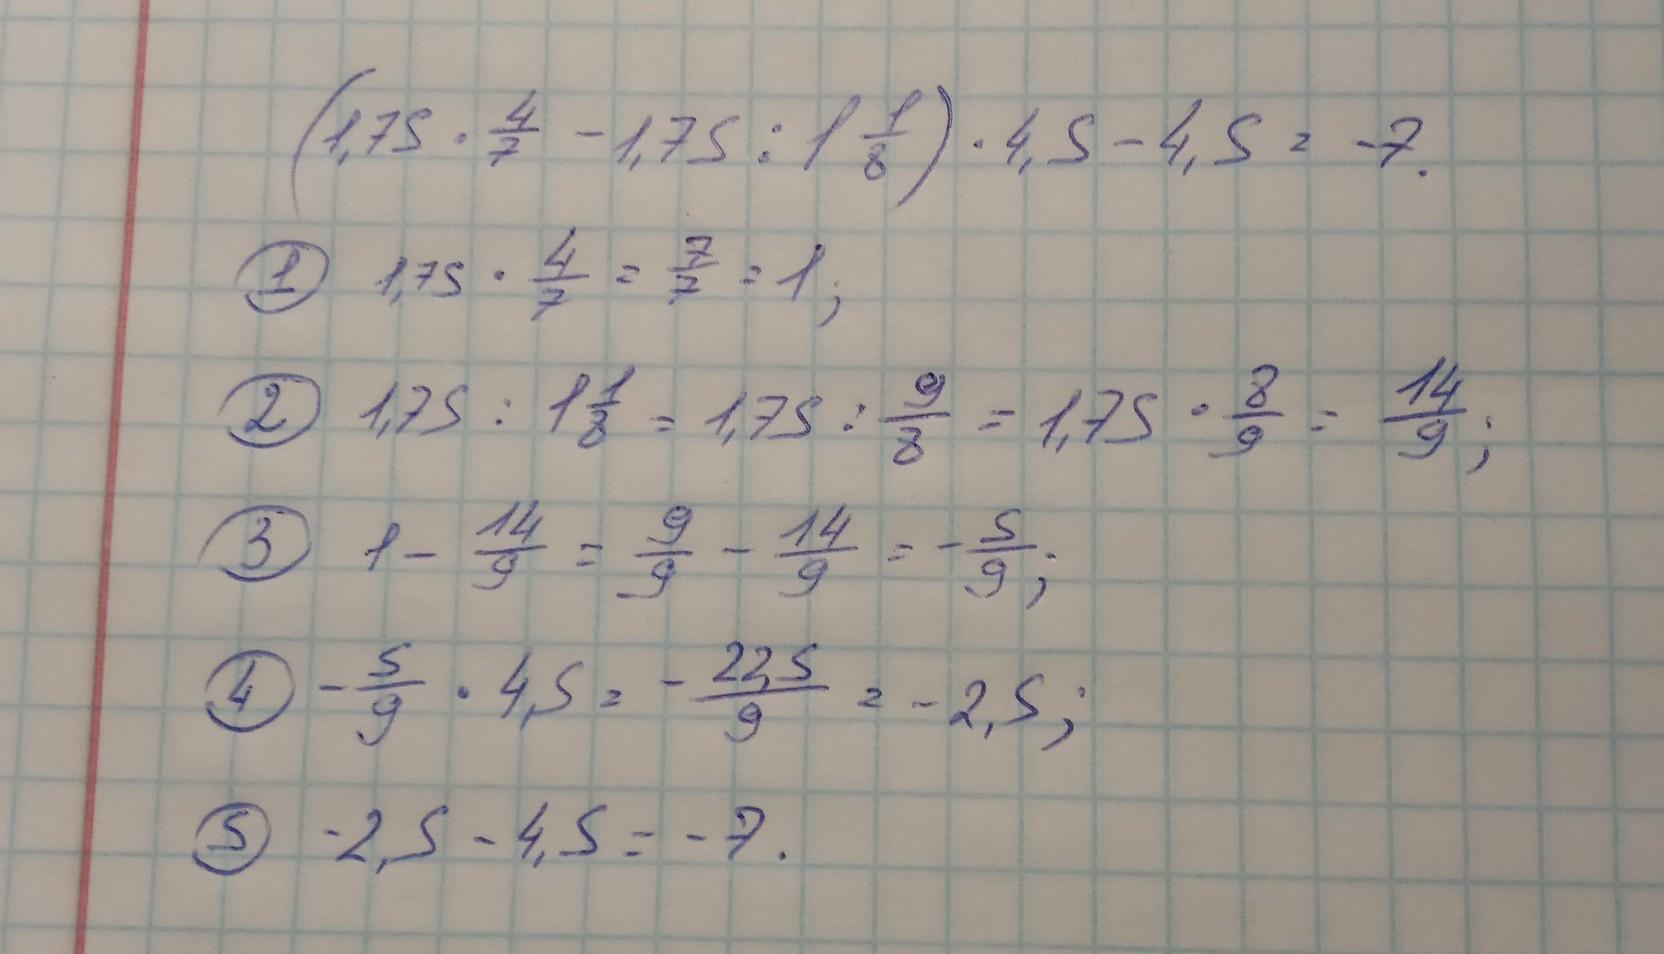 (1,75 · 4/7 - 1,75 : 1 1/8) · 4,5 - 4,5 = -7.
① 1,75 · 4/7 = 7/7 = 1;
② 1,75 : 1 1/8 = 1,75 : 9/8 = 1,75 · 8/9 = 14/9;
③ 1 - 14/9 = 9/9 - 14/9 = -5/9;
④ -5/9 · 4,5 = -22,5/9 = -2,5;
⑤ -2,5 - 4,5 = -7.